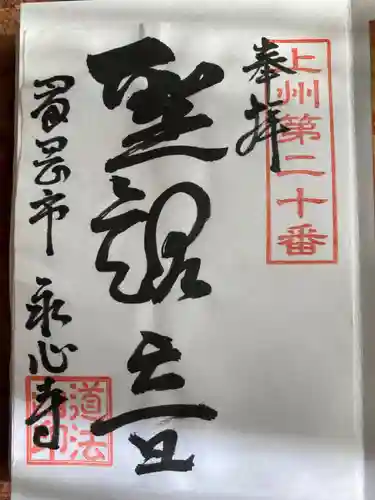 上州第二十番
奉拝
聖観音
富岡市 永心寺